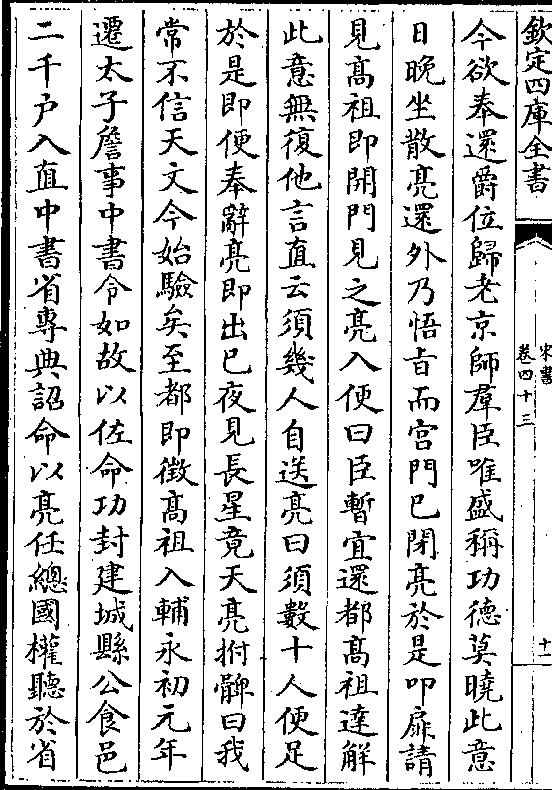 欽定四庫全書
宋書
卷四十三
十一
今欲奉還爵位歸老京師羣臣唯盛稱功德莫曉此意
日晚坐散亮還外乃悟旨而宫門已閉亮於是叩扉請
見髙祖即開門見之亮入便曰臣暫宜還都髙祖達解
此意無復他言直云須幾人自送亮曰須數十人便足
於是即便奉辭亮即出已夜見長星竟天亮拊髀曰我
常不信天文今始驗矣至都即徴髙祖入輔永初元年
遷太子詹事中書令如故以佐命功封建城縣公食邑
二千户入直中書省專典詔命以亮任總國權聽於省